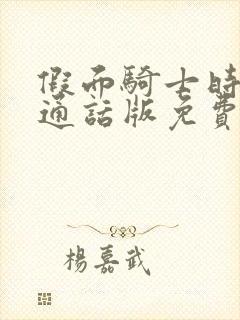 假面騎士時
通話版免費
楊嘉武